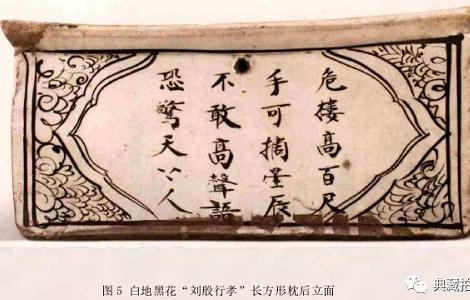 危樓高百尺
手可摘星辰
不敢高聲語
恐驚天上人
图5 白地黑花“刘殷行孝”长方形枕后立面
典藏拍